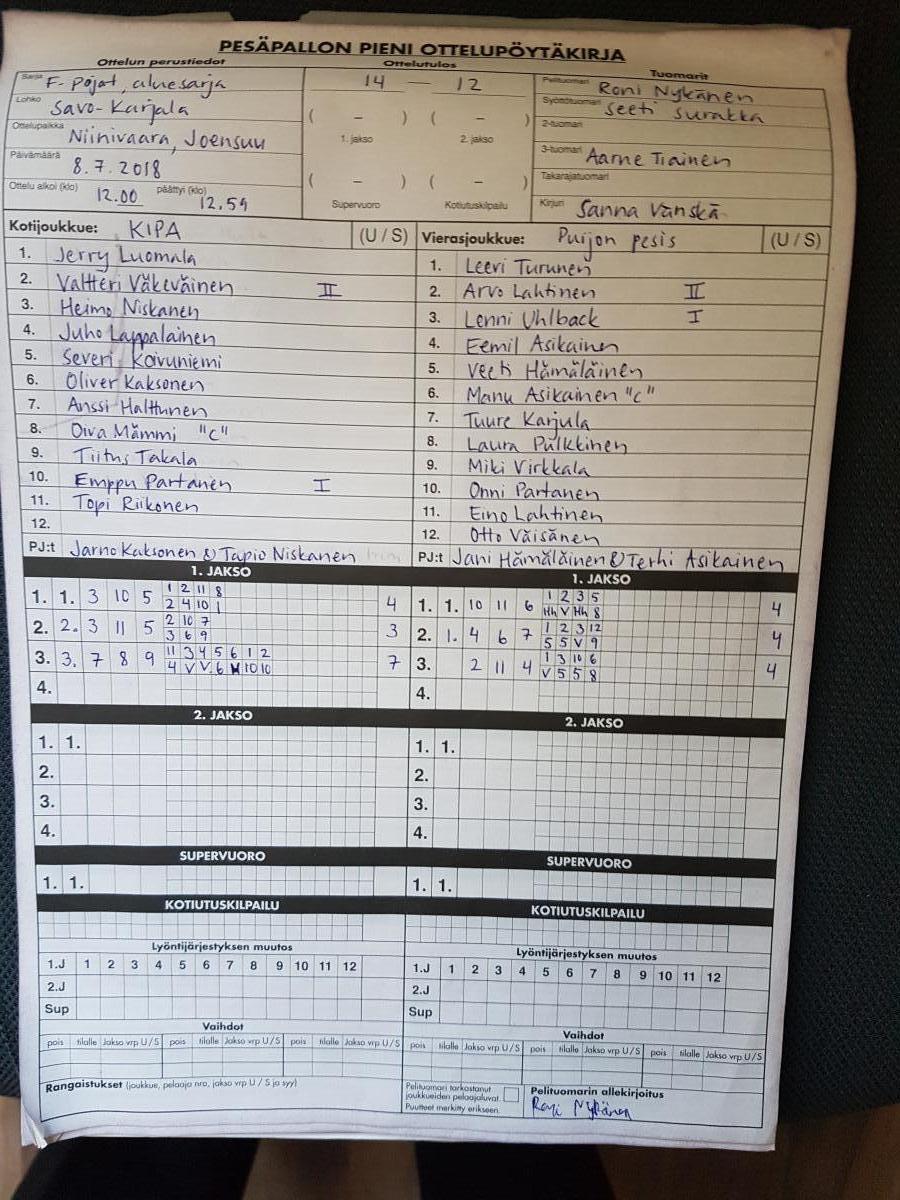 PESÄPALLON PIENI OTTELUPÖYTÄKIRJA
Ottelun perustiedot
Ottelutulos
Tuomarit
Sarja F-Pojat, aluesarja
Lohko Savo-Karjala
Ottelupaikka Niinivaara, Joensuu
Päivämäärä 8.7.2018
Ottelu alkoi (klo) 12.00 päättyi (klo) 12.54
14 — 12
( – ) ( – )
1. jakso 2. jakso
( – ) ( – )
Supervuoro Kotiutuskilpailu
Pelituomari Roni Nykänen
Syöttötuomari Seeti Surakka
2-tuomari
3-tuomari Aarne Tiainen
Takarajatuomari
Kirjuri Sanna Vänskä
Kotijoukkue: KIPA (U / S)
1. Jerry Luomala
2. Valtteri Väkeväinen II
3. Heimo Niskanen
4. Juho Lappalainen
5. Severi Koivuniemi
6. Oliver Kaksonen
7. Anssi Halttunen
8. Oiva Mämmi "C"
9. Tiitus Takala
10. Emppu Partanen I
11. Topi Riikonen
12.
PJ:t Jarno Kaksonen & Tapio Niskanen
Vierasjoukkue: Puijon pesis (U / S)
1. Leevi Turunen
2. Arvo Lahtinen II
3. Lenni Uhlback I
4. Eemil Asikainen
5. Veeti Hämäläinen
6. Manu Asikainen "C"
7. Tuure Karjula
8. Laura Pulkkinen
9. Miki Virkkala
10. Onni Partanen
11. Eino Lahtinen
12. Otto Väisänen
PJ:t Jani Hämäläinen & Terhi Asikainen
1. JAKSO
1 2 11 8
1. 1. 3 10 5 4
2 4 10 1
2 10 7
2. 2. 3 11 5 3
3 6 9
11 3 4 5 6 1 2
3. 3. 7 8 9 7
4 V V 6 10 10
4.
2. JAKSO
1. 1.
2.
3.
4.
SUPERVUORO
1. 1.
KOTIUTUSKILPAILU
Lyöntijärjestyksen muutos
1.J 1 2 3 4 5 6 7 8 9 10 11 12
2.J
Sup
Vaihdot
pois tilalle Jakso vrp U / S pois tilalle Jakso vrp U / S pois tilalle Jakso vrp U / S
Rangaistukset (joukkue, pelaaja nro, jakso vrp U / S ja syy)
1. JAKSO
1 2 3 5
1. 1. 10 11 6 4
Hh V Hh 8
1 2 3 12
2. 1. 4 6 7 4
5 5 V 9
1 3 10 6
3. 2 11 4 4
V 5 5 8
4.
2. JAKSO
1. 1.
2.
3.
4.
SUPERVUORO
1. 1.
KOTIUTUSKILPAILU
Lyöntijärjestyksen muutos
1.J 1 2 3 4 5 6 7 8 9 10 11 12
2.J
Sup
Vaihdot
pois tilalle Jakso vrp U / S pois tilalle Jakso vrp U / S pois tilalle Jakso vrp U / S
Pelituomari tarkastanut
joukkueiden pelaajaluvat.
Puutteet merkitty erikseen.
Pelituomarin allekirjoitus
Roni Nykänen